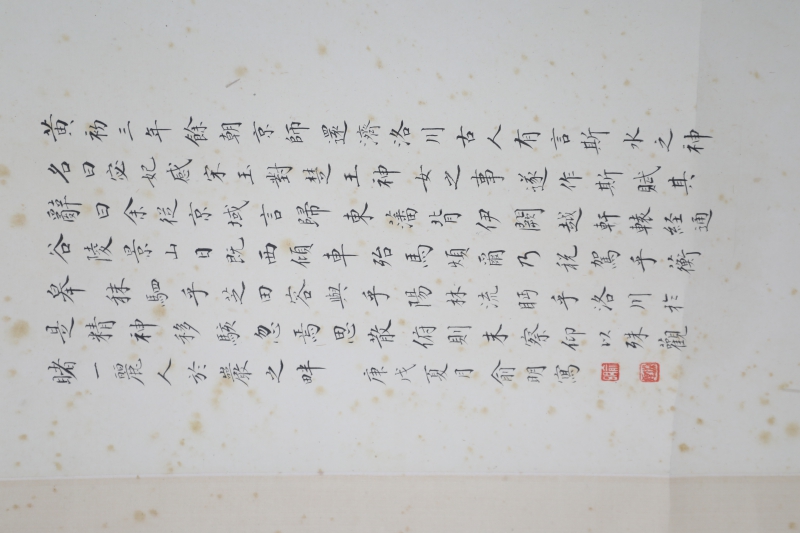 黃初三年餘朝京師還濟洛川古人有言斯水之神
名曰宓妃感宋玉對楚王神女之事遂作斯賦其
辭曰余從京域言歸東藩背伊闕越軒轅経通
谷陵景山日既西傾車殆馬煩爾乃税駕乎蘅
皋秣駟乎芝田容與乎陽林流眄乎洛川於
是精神移駭忽焉思散俯則未察仰以殊觀
睹一麗人於巖之畔 庚戌夏月俞明寫